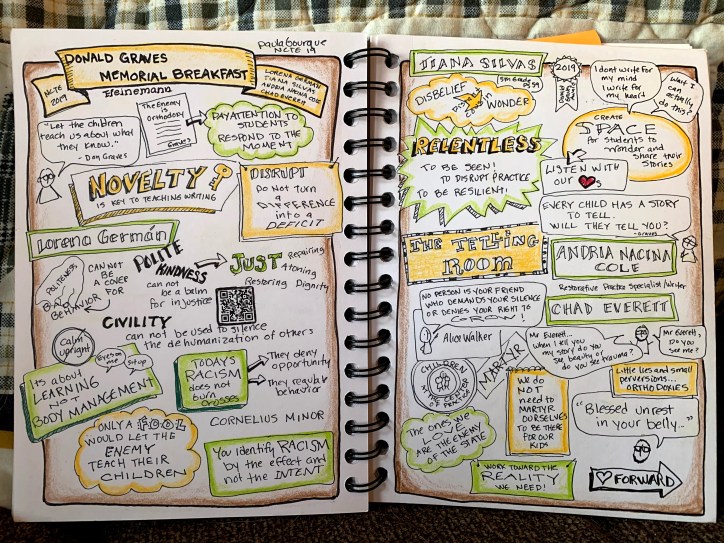 Paula Bourque
NCTE 19
DONALD GRAVES
MEMORIAL BREAKFAST
Heinemann
NCTE
2019
LORENA GERMAN
TIANA SILVAS
ANDRIA NACINA COLE
CHAD EVERETT
"Let the children
teach us about what
they know."
- Don Graves
The Enemy
is
Orthodoxy
Graves
PAY ATTENTION TO
STUDENTS
RESPOND TO THE
MOMENT
NOVELTY
IS KEY TO TEACHING WRITING
DISRUPT
Do Not Turn
a
DIFFERENCE
into a
DEFICIT
Lorena Germán
POLITENESS
CANNOT
BE
A COVER
FOR
BAD
BEHAVIOR
POLITE
KINDNESS
can not
be a balm
for injustice
JUST
Repairing
Atoning
Restoring Dignity
CIVILITY
can not be used to silence
the dehumanization of others
Calm
upright
Eyes on
me
Sit up
It's about
LEARNING
NOT
BODY MANAGEMENT
TODAY'S
RACISM
does not
burn
crosses
They deny
opportunity
They regulate
behavior
CORNELIUS MINOR
ONLY A FOOL
WOULD LET THE
ENEMY
TEACH THEIR
CHILDREN
You identify RACISM
by the effect and
not the INTENT
TIANA SILVAS
5th Grade
PS 59
2019
Donald
Graves
Award
DISBELIEF
WONDER
I dont write for
my mind
I write for
my heart
Wait I
can
actually
do this?
RELENTLESS
TO BE SEEN!
TO DISRUPT PRACTICE
TO BE RESILIENT!
CREATE
SPACE
for students to
Wonder and
share their
Stories
LISTEN WITH
OUR ♥s
EVERY CHILD HAS A STORY
TO TELL.
WILL THEY TELL YOU?
-Graves
THE TELLING
ROOM
ANDRIA NACINA
COLE
Restorative Practice Specialist/Writer
CHAD EVERETT
NO PERSON IS YOUR FRIEND
WHO DEMANDS YOUR SILENCE
OR DENIES YOUR RIGHT TO
GROW!
Alice Walker
MARTYR
Mr Everett...
when I tell you
my story do you
see beauty or
do you see trauma?
Mr Everett,
Do you
see me?
CHILDREN
IN THE CENTER OF
PRACTICE
We do
NOT
need to
MARTYR
OURSELVES
TO BE THERE
FOR OUR
KIDS
Little lies and small
perversions...
ORTHODOXIES
"Blessed unrest
in your belly..."
The ones we
LOVE
ARE THE ENEMY
OF THE STATE
WORK TOWARD THE
REALITY
WE NEED!
♥ FORWARD